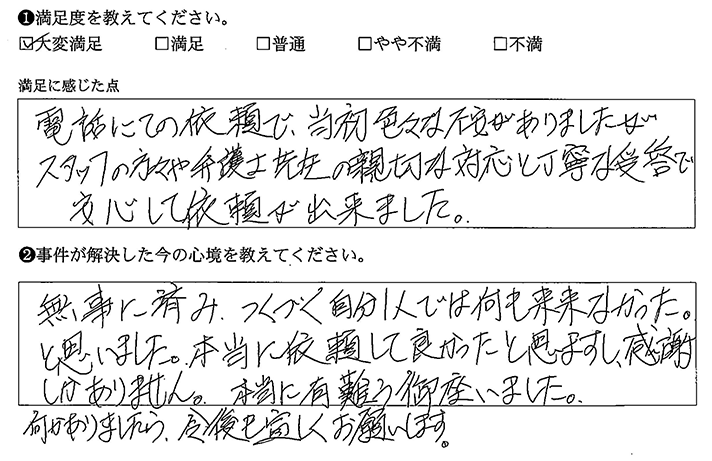 ❶満足度を教えてください。
☑大変満足 □満足 □普通 □やや不満 □不満
満足に感じた点
電話にての依頼で、当初色々な不安がありましたが
スタッフの方々や弁護士先生の親切な対応と丁寧な受答で
安心して依頼が出来ました。
❷事件が解決した今の心境を教えてください。
無事に済み、つくづく自分1人では何も出来なかった。
と思いました。本当に依頼して良かったと思ますし、感謝
しかありません。本当に有難う御座いました。
何かありましたら、今後も宜しくお願いします。